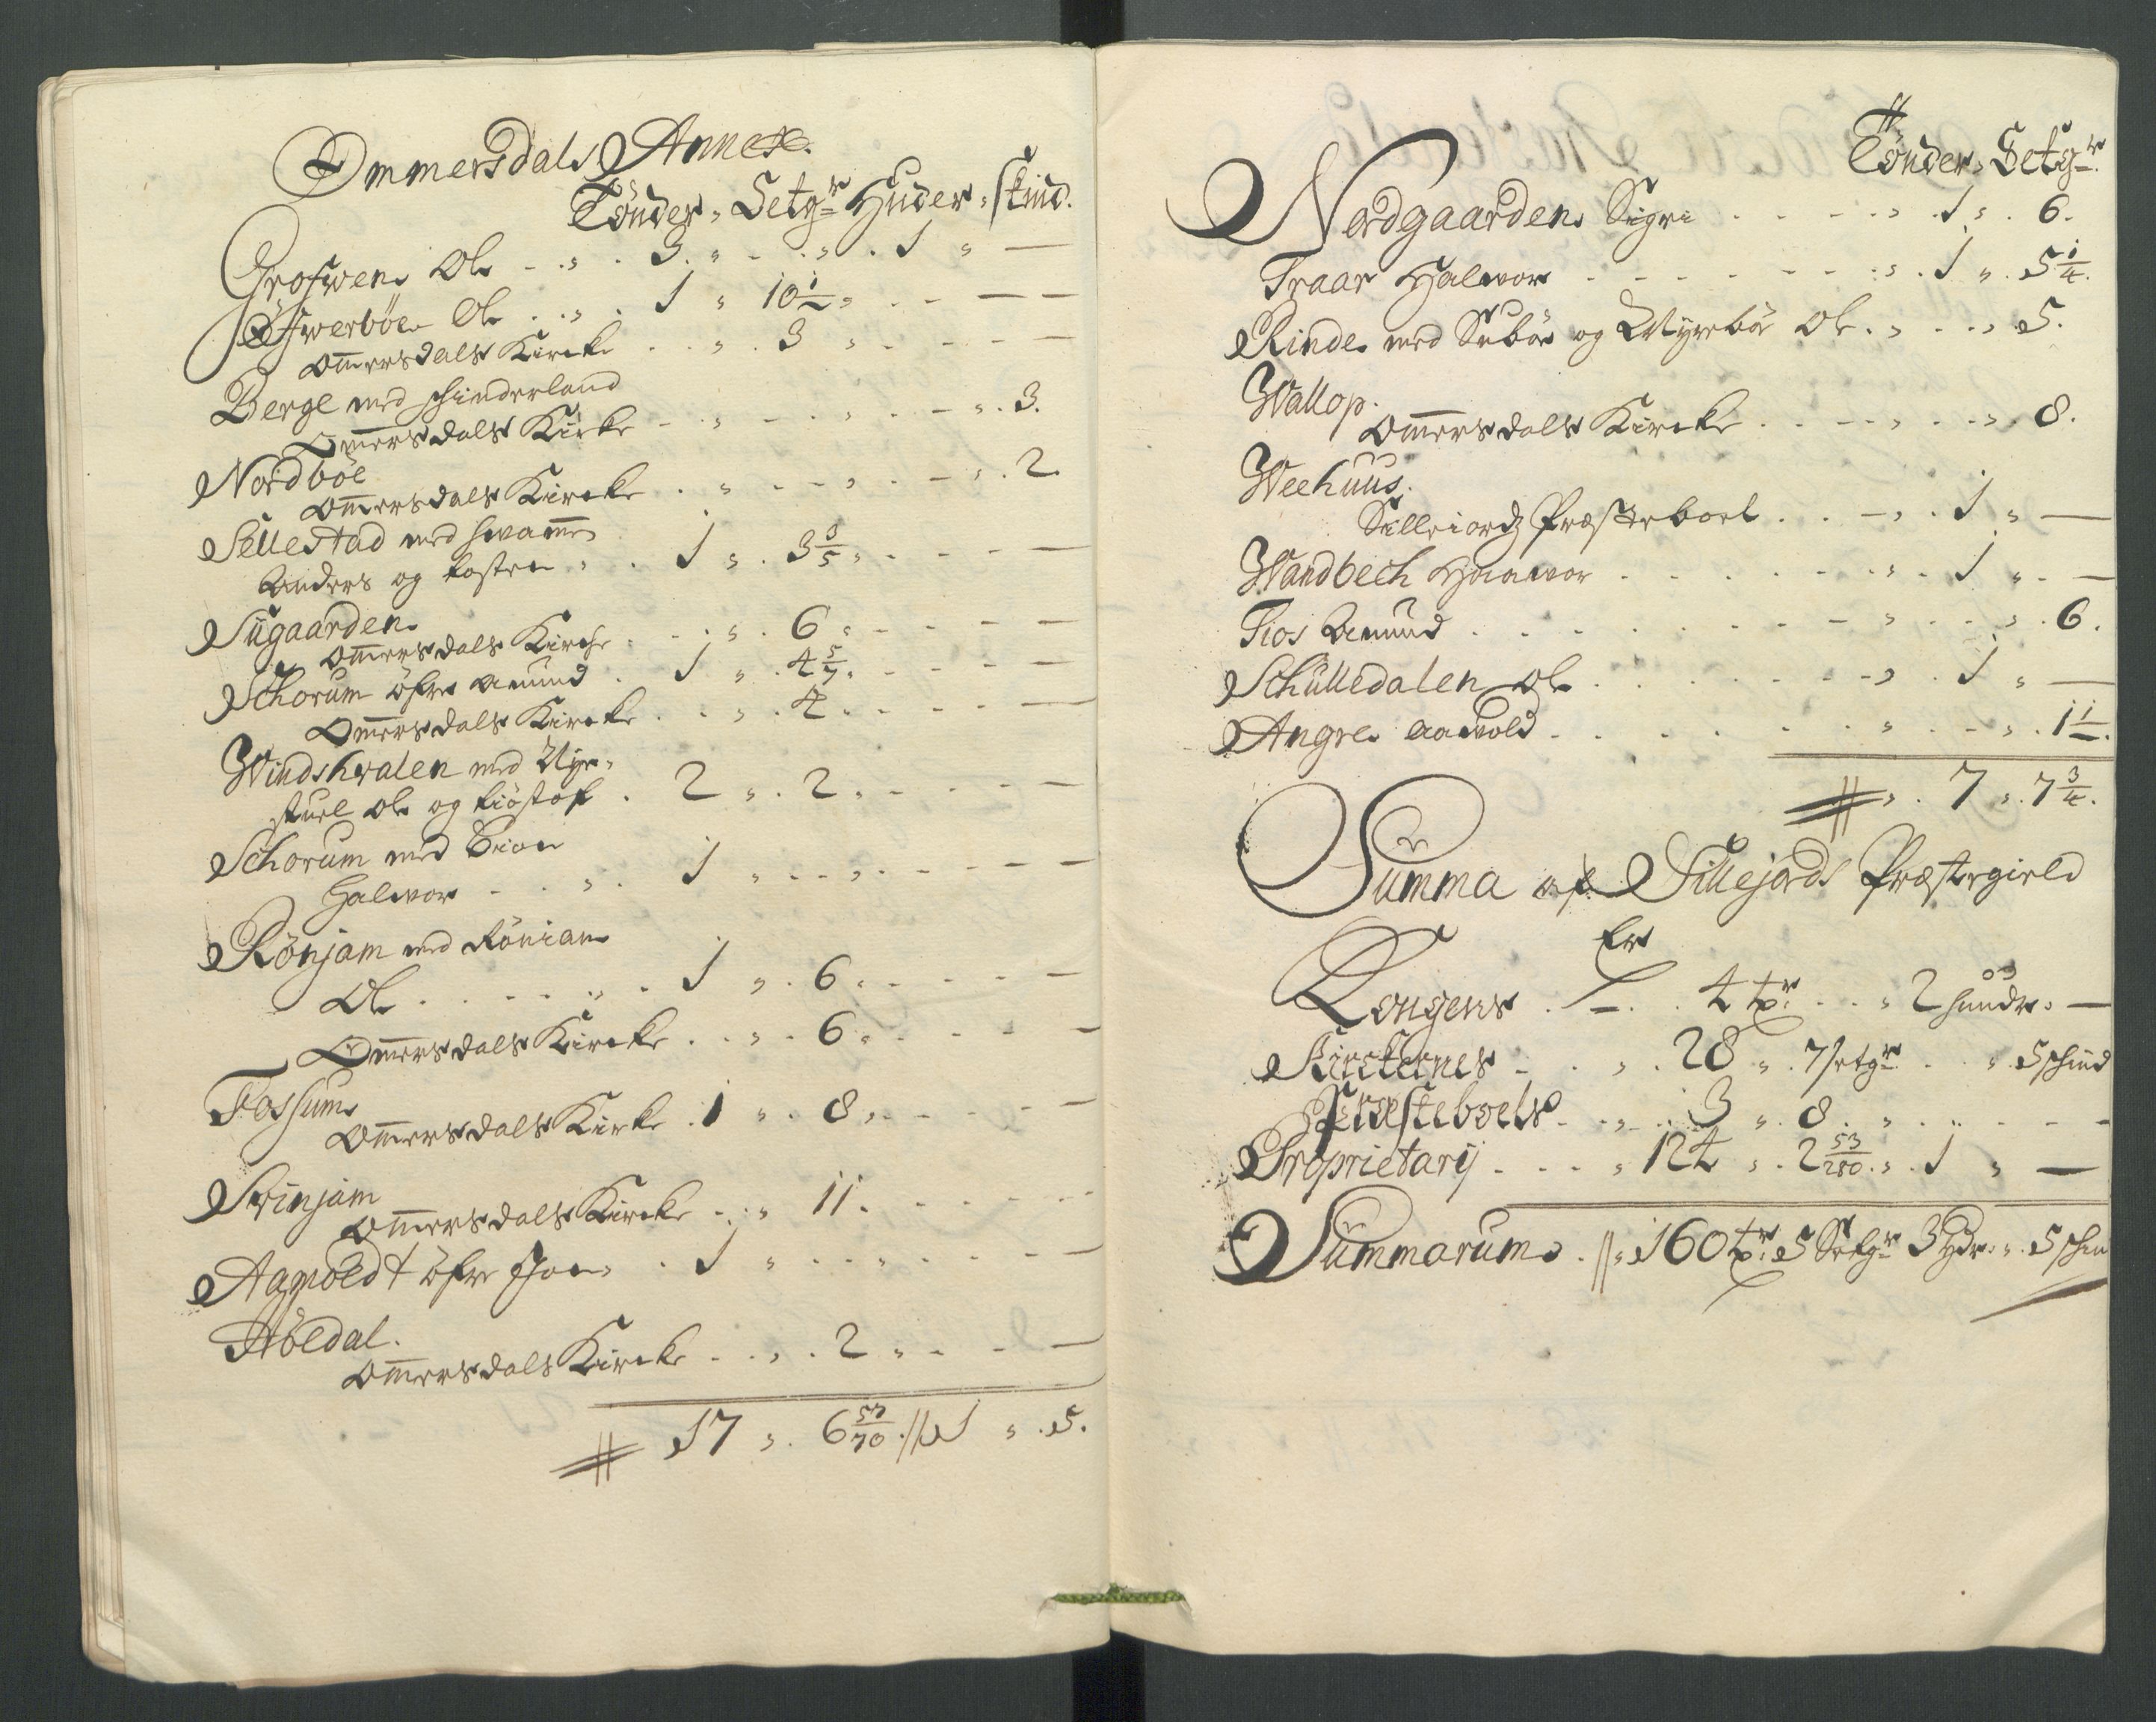 Ommersdals Annex.
Tönder, Setgr Huder, skind.
Groswen, Ole - . „ . 3. „ - . „ . 1 „ —
Öfwerböe Ole . . „ . 1 „ 10½ „ . . - — —
Omersdals Kircke . . „ . 3 „ . - - - —
Berge med hinderland
Omersdals Kircke - . „ - . „ . . - „ . 3.
Nordböe
Omersdals Kircke . „ . - „ . - „ . 2.
Sellestad med
Anders og „ . 1 „ . 3 3/5 „ . - - —
Sügaarden
Omersdals Kirche . - . „ . 6 „ - - - —
Schorum öfre Amund . 1 „ . 4 5/7 „ - . - - —
Omersdals Kircke . . „ . 4 . - - - —
Windshvalen med Nye-
stuel Ole og Kiöstof . 2 „ . 2 „ - - - —
Schorum med
Halwor - . . „ . 1 „ . . - „ . - - —
Rönjam med Röniam
Ole . . - . . „ . 1 „ . 6 „ . - - —
Omersdals Kircke . . „ . 6 „ . - - —
Fossum
Omersdals Kircke . 1 „ . 8 „ . - - - —
Svinjam
Omersdals Kircke . . „ 11 . . - - - -
Aamoldt öfre Jon . 1 „ . . „ . - - —
Höedal.
Omersdals Kircke . . „ . 2 „ . - - —
17 „ . 6 57/70 . // 1 „ . 5.
Tönder, Setgr
Nordgaarden Sigri . . - . - „ . 1 „ . 6.
Traar Halwor - - - - - - - . „ . 1 „ . 5¼.
Rinde med Subö og Myrebö Ole . „ . . „ . 5.
Wallop.
Omersdals Kircke . . - - „ . . „ . 8.
Weehuus.
Silleiords Præsteboel . . - „ . 1 „ —
Wandbech Haawor . . . . . - „ . 1 „ . —
Fios Amund . . . . . . - - „ . . - „ . 6.
Schülledalen Ole . . . . . . - - „ . 1 „ —
Angre Aawold - . . . . . . „ . - „ . 1½.
„ . 7 „ . 7¾.
Summa af Sillejords Præstegield
Er
Kongens . . — . . 4 tr . . „ 2 huudr. —
Kirckernes - . „ . 28 „ . 7 setgr . . „ . 5 schind
Præsteboels - . „ . . 3 „ . 8 . „ . . . - - —
Proprietarij . . . „ 124 „ . 2 53/280 . „ . 1 „ —
Summarum . // „ 160 tr. 5 Setgr 3 Hdr. „ . 5 schin